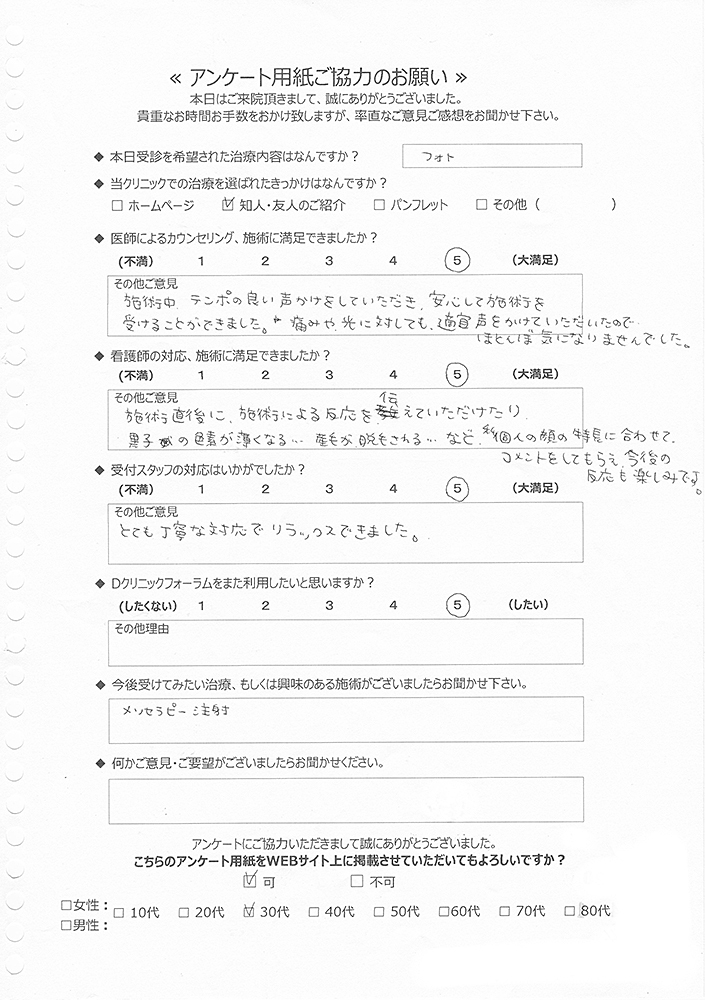 ≪ アンケート用紙ご協力のお願い ≫
本日はご来院頂きまして、誠にありがとうございました。
貴重なお時間お手数をおかけ致しますが、率直なご意見ご感想をお聞かせ下さい。
◆ 本日受診を希望された治療内容はなんですか？ フォト
◆ 当クリニックでの治療を選ばれたきっかけはなんですか？
☐ ホームページ ☑ 知人・友人のご紹介 ☐ パンフレット ☐ その他（ ）
◆ 医師によるカウンセリング、施術に満足できましたか？
(不満) 1 2 3 4 ⑤ (大満足)
その他ご意見
施術中、テンポの良い声かけをしていただき、安心して施術を
受けることができました。痛みや、光に対しても、適宜声をかけていただいたので
ほとんど気になりませんでした。
◆ 看護師の対応、施術に満足できましたか？
(不満) 1 2 3 4 ⑤ (大満足)
その他ご意見
施術直後に、施術による反応を、伝えていただけたり
黒子の色素が薄くなる… 産毛が脱もされる… など、個人の顔の特長に合わせて、
コメントをしてもらえ、今後の
反応も楽しみです。
◆ 受付スタッフの対応はいかがでしたか？
(不満) 1 2 3 4 ⑤ (大満足)
その他ご意見
とても丁寧な対応でリラックスできました。
◆ Dクリニックフォーラムをまた利用したいと思いますか？
(したくない) 1 2 3 4 ⑤ (したい)
その他理由
◆ 今後受けてみたい治療、もしくは興味のある施術がございましたらお聞かせ下さい。
メソセラピー注射
◆ 何かご意見・ご要望がございましたらお聞かせください。
アンケートにご協力いただきまして誠にありがとうございました。
こちらのアンケート用紙をWEBサイト上に掲載させていただいてもよろしいですか？
☑ 可 ☐ 不可
☐女性：
☐ 10代 ☐ 20代 ☑ 30代 ☐ 40代 ☐ 50代 ☐60代 ☐ 70代 ☐ 80代
☐男性：